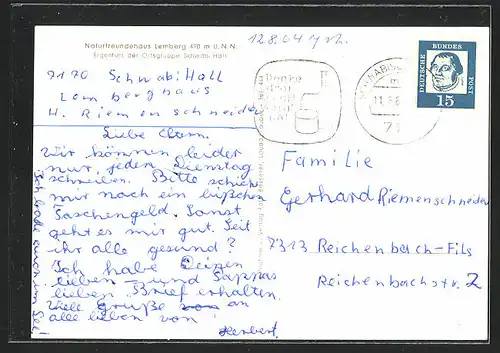 Naturfreundehaus Lemberg 470 m ü.N.N.
Eigentum der Ortsgruppe Schwäb. Hall
7170 Schwäb. Hall
Lemberghaus
H. Riemenschneider
Liebe Eltern.
Wir können leider
nur jeden Dienstag
schreiben. Bitte schickt
mir noch ein bißchen
Taschengeld. Sonst
geht es mir gut. Seid
ihr alle gesund?
Ich habe Deinen
lieben und Pappas
lieben Brief erhalten.
Viele Grüße von an
alle lieben von
Herbert.
Ich bade auch im See
DEUTSCHE BUNDES POST
15
Familie
Gerhard Riemenschneider
7313 Reichenbach-Fils
Reichenbachstr. 2